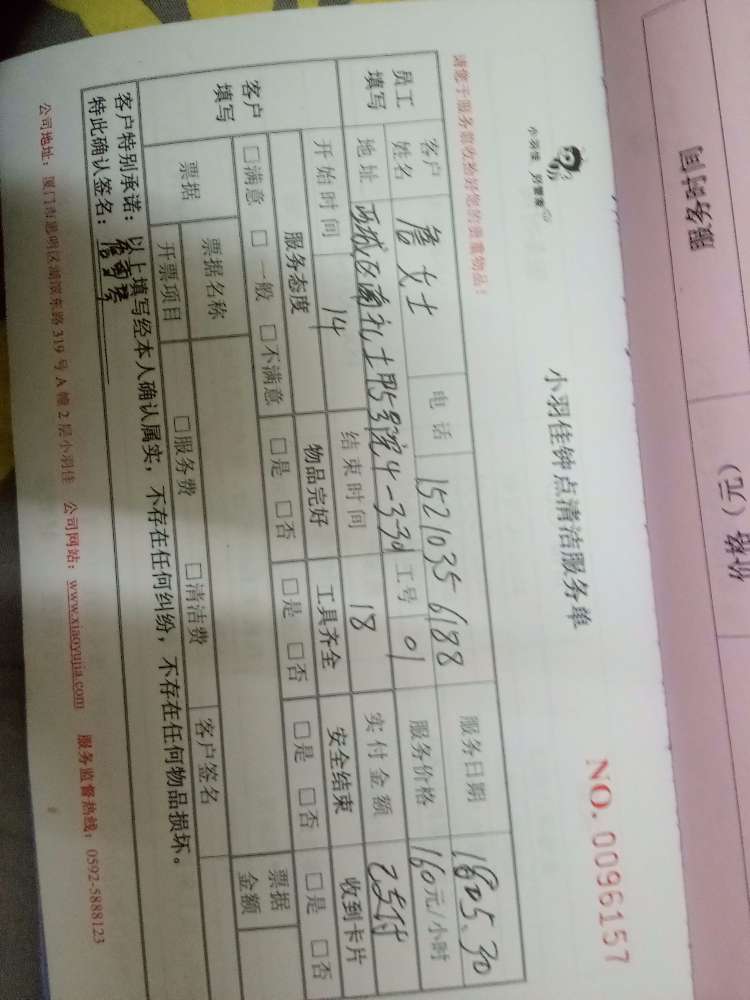 服务时间
价格（元）
小羽佳 好管家
小羽佳钟点清洁服务单
NO. 0096157
请您于服务前收拾好您的贵重物品！
员工填写 客户姓名 詹女士 电话 15210356188 服务日期 1805.30
地址 西城区 礼士 5号院4-3-301 工号 01 服务价格 160元/小时
开始时间 14 结束时间 18 实付金额 已支付
客户填写 服务态度 物品完好 工具齐全 安全结束 收到卡片
□满意 □一般 □不满意 □是 □否 □是 □否 □是 □否 □是 □否
票据 票据名称 客户签名 票据金额
开票项目 □服务费 □清洁费
客户特别承诺：以上填写经本人确认属实，不存在任何纠纷，不存在任何物品损坏。
特此确认签名：
公司地址：厦门市思明区湖滨东路319号A幢2层小羽佳 公司网站：www.xiaoyujia.com 服务监督热线：0592-5888123